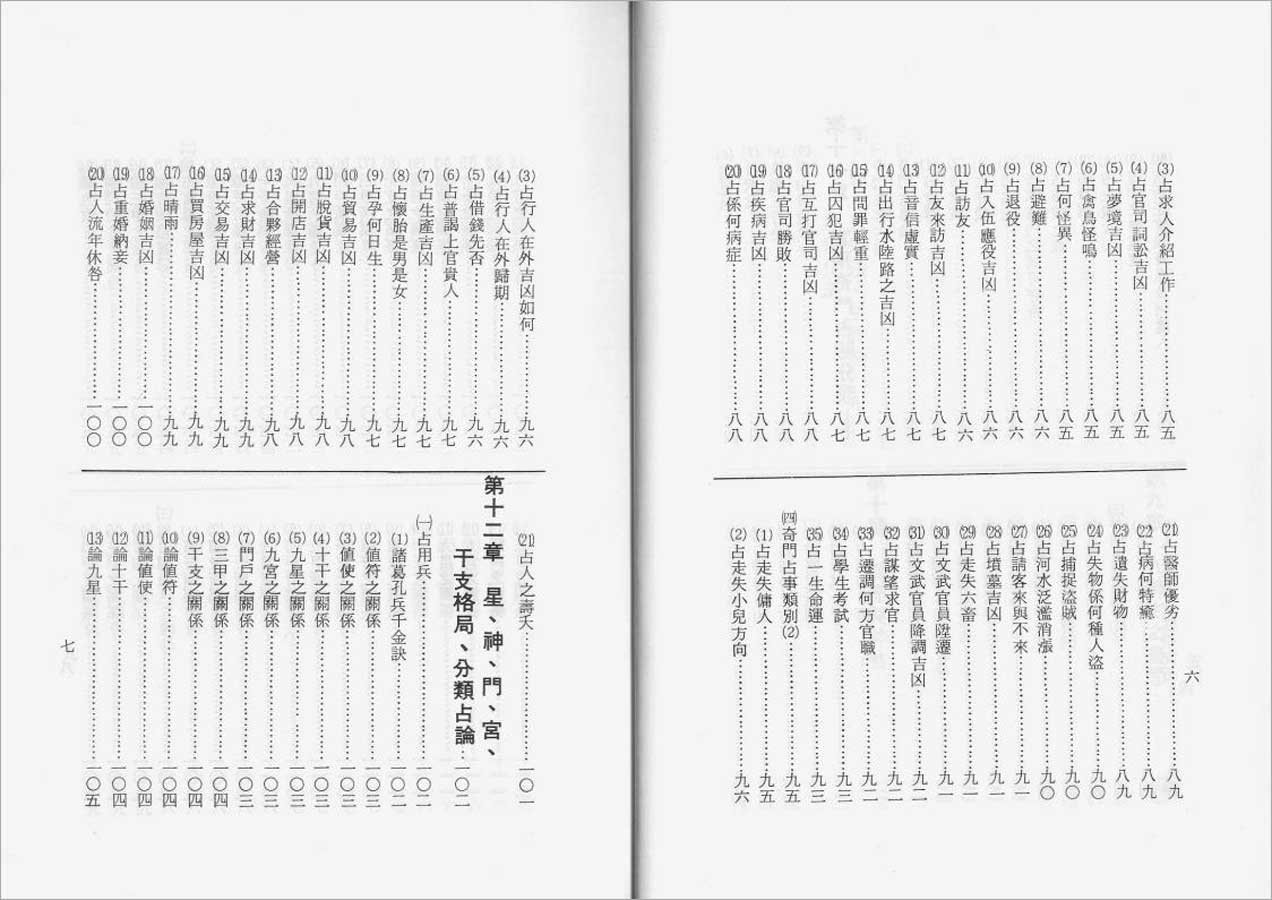 ⑶占求人介紹工作……八五
⑷占官司詞訟吉凶……八五
⑸占夢境吉凶……八五
⑹占禽鳥怪鳴……八五
⑺占何怪異……八五
⑻占避難……八六
⑼占退役……八六
⑽占入伍應役吉凶……八六
⑾占訪友……八六
⑿占友來訪吉凶……八七
⒀占音信虛實……八七
⒁占出行水陸路之吉凶……八七
⒂占問罪輕重……八七
⒃占囚犯吉凶……八七
⒄占互打官司吉凶……八八
⒅占官司勝敗……八八
⒆占疾病吉凶……八八
⒇占係何病症……八八
(21)占醫師優劣……八九
(22)占病何時癒……八九
(23)占遺失財物……八九
(24)占失物係何種人盜……九〇
(25)占捕捉盜賊……九〇
(26)占河水泛濫消漲……九〇
(27)占請客來與不來……九一
(28)占墳墓吉凶……九一
(29)占走失六畜……九一
(30)占文武官員陞遷……九一
(31)占文武官員降調吉凶……九二
(32)占謀望求官……九二
(33)占遷調何方官職……九二
(34)占學生考試……九三
(35)占一生命運……九三
㈣奇門占事類別⑵……九五
⑴占走失傭人……九五
⑵占走失小兒方向……九六
六
⑶占行人在外吉凶如何……九六
⑷占行人在外歸期……九六
⑸占借錢先否……九六
⑹占普謁上官貴人……九七
⑺占生產吉凶……九七
⑻占懷胎是男是女……九七
⑼占孕何日生……九七
⑽占貿易吉凶……九八
⑾占脫貨吉凶……九八
⑿占開店吉凶……九八
⒀占合夥經營……九八
⒁占求財吉凶……九九
⒂占交易吉凶……九九
⒃占買房屋吉凶……九九
⒄占晴雨……九九
⒅占婚姻吉凶……一〇〇
⒆占重婚納妾……一〇〇
⒇占人流年休咎……一〇〇
(21)占人之壽夭……一〇一
第十二章 星、神、門、宮、
干支格局、分類占論……一〇二
㈠占用兵……一〇二
⑴諸葛孔兵千金訣……一〇二
⑵值符之關係……一〇三
⑶值使之關係……一〇三
⑷十干之關係……一〇三
⑸九星之關係……一〇三
⑹九宮之關係……一〇三
⑺門戶之關係……一〇三
⑻三甲之關係……一〇四
⑼干支之關係……一〇四
⑽論值符……一〇四
⑾論值使……一〇四
⑿論十干……一〇四
⒀論九星……一〇五
七